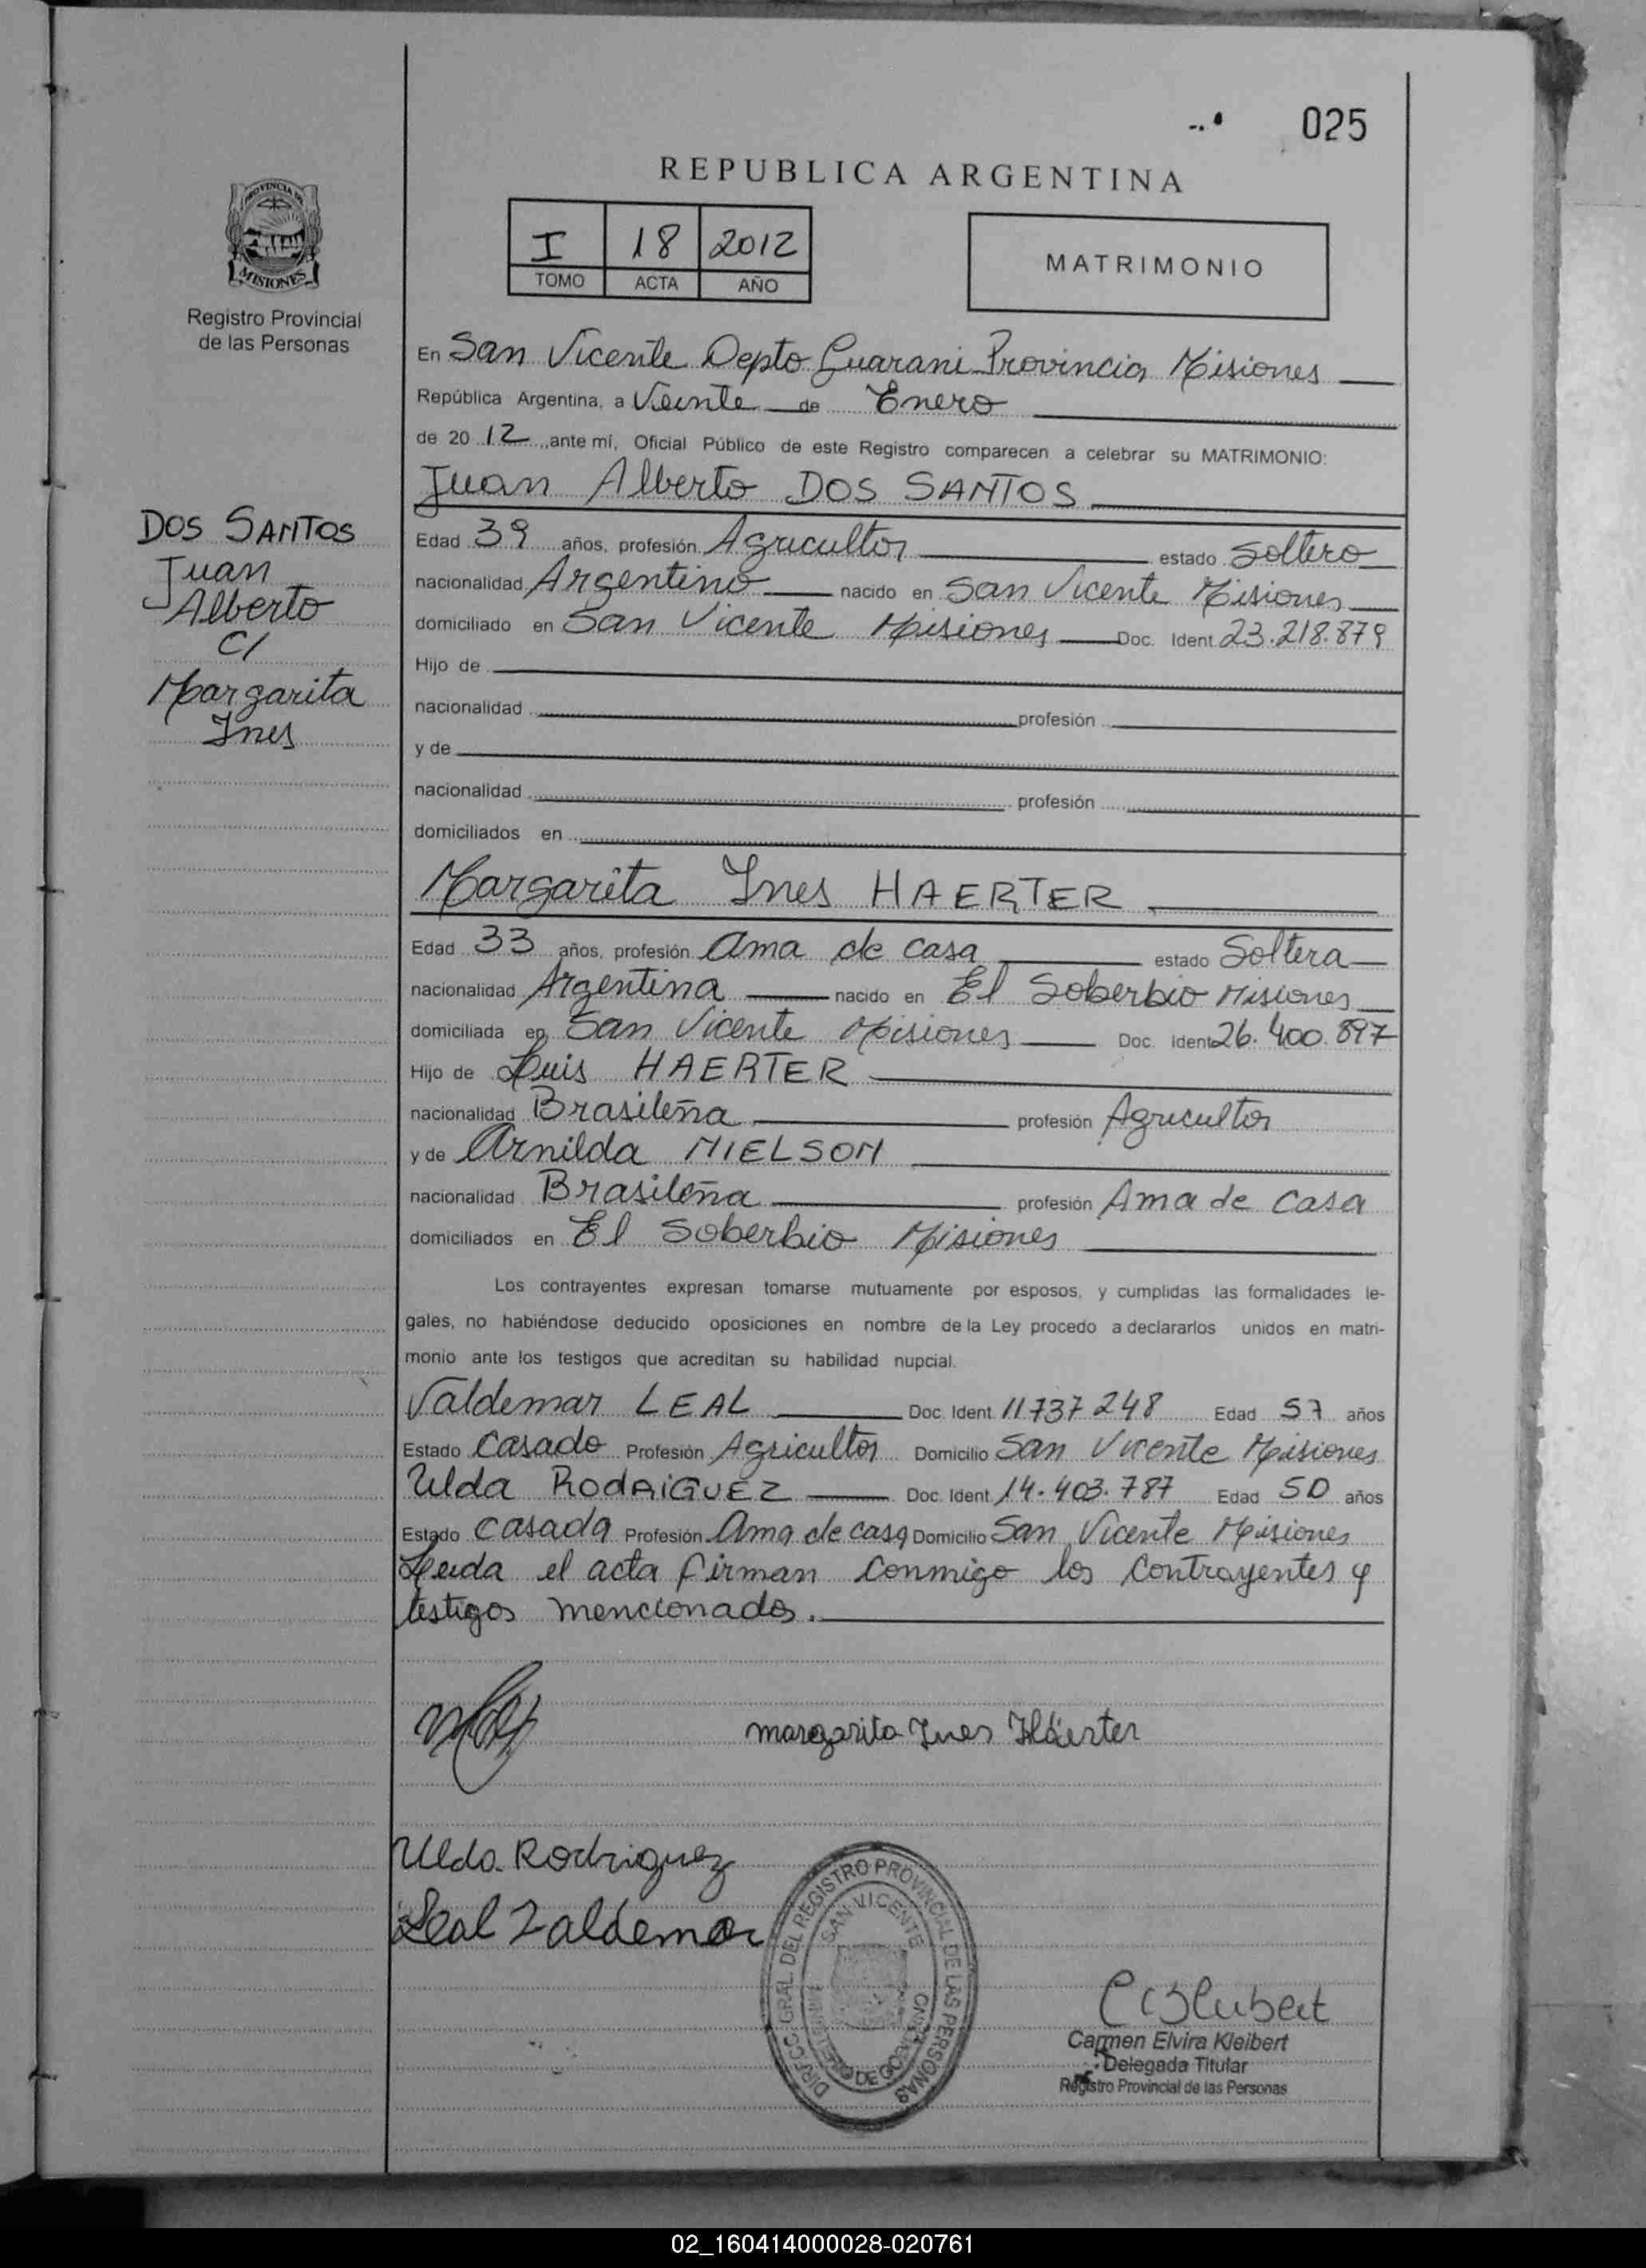 025
REPUBLICA ARGENTINA
I 18 2012
TOMO ACTA AÑO
MATRIMONIO
PROVINCIA DE
MISIONES
Registro Provincial
de las Personas
En San Vicente Depto Guarani Provincia Misiones
República Argentina, a Veinte de Enero
de 20 12, ante mí, Oficial Público de este Registro comparecen a celebrar su MATRIMONIO:
Juan Alberto DOS SANTOS
DOS SANTOS
Juan
Alberto
C/
Margarita
Ines
Edad 39 años, profesión Agricultor estado Soltero
nacionalidad Argentino nacido en San Vicente Misiones
domiciliado en San Vicente Misiones Doc. Ident 23.218.879
Hijo de
nacionalidad profesión
y de
nacionalidad profesión
domiciliados en
Margarita Ines HAERTER
Edad 33 años, profesión Ama de casa estado Soltera
nacionalidad Argentina nacido en El Soberbio Misiones
domiciliada en San Vicente Misiones Doc. Ident 26.400.897
Hijo de Luis HAERTER
nacionalidad Brasileña profesión Agricultor
y de Arnilda NIELSON
nacionalidad Brasileña profesión Ama de casa
domiciliados en El Soberbio Misiones
Los contrayentes expresan tomarse mutuamente por esposos, y cumplidas las formalidades le-
gales, no habiéndose deducido oposiciones en nombre de la Ley procedo a declararlos unidos en matri-
monio ante los testigos que acreditan su habilidad nupcial.
Valdemar LEAL Doc. Ident. 11737248 Edad 57 años
Estado Casado Profesión Agricultor Domicilio San Vicente Misiones
Ulda RODRIGUEZ Doc. Ident. 14.403.787 Edad 50 años
Estado Casada Profesión Ama de casa Domicilio San Vicente Misiones
Leida el acta firman conmigo los contrayentes y
testigos mencionados.
margarita Ines Häerter
Ulda Rodriguez
Leal Valdemar
DIRECC. GRAL. DEL REGISTRO PROVINCIAL DE LAS PERSONAS
SAN VICENTE
Carmen Elvira Kleibert
Delegada Titular
Registro Provincial de las Personas
02_160414000028-020761